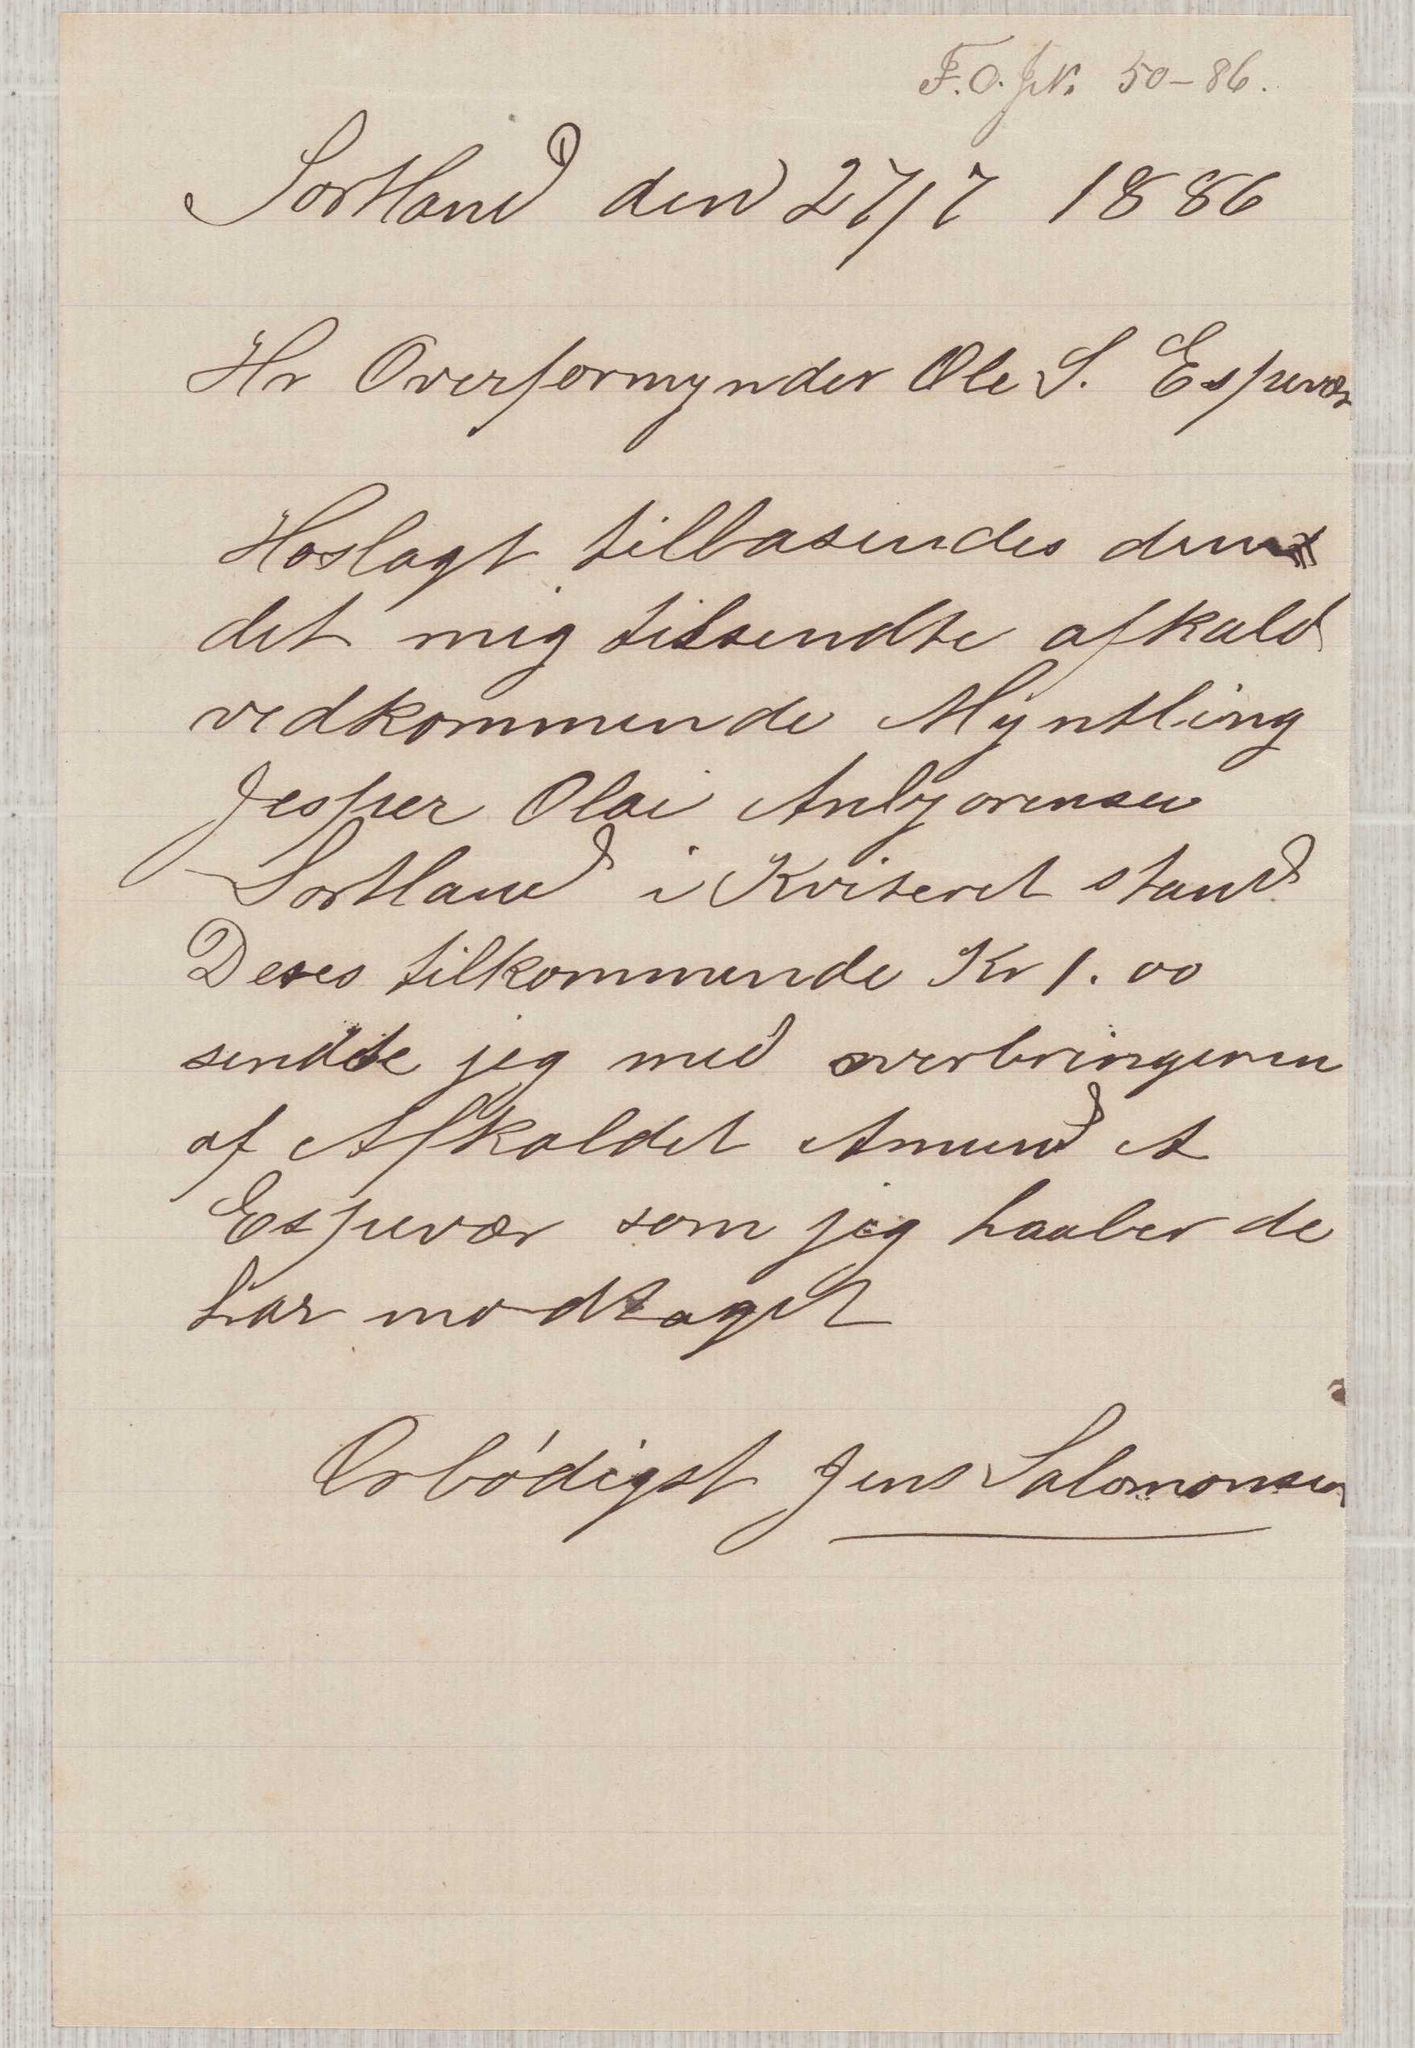 F.O.JN. 50-86.
Sortland den 27/7 1886
Hr Overformynder Ole S. Espevær
Hoslagt tilbasendes
det mig tilsendte afkald
vedkommende Myntling
Jesper Olai Anbjorensen
Sortland i Kviteret stand
Deres tilkommende Kr 1.00
sendte jeg med overbringeren
af Afkaldet Amund A
Espevær som jeg haaber de
har modtaget
Ærbódigst Jens Salomonsen